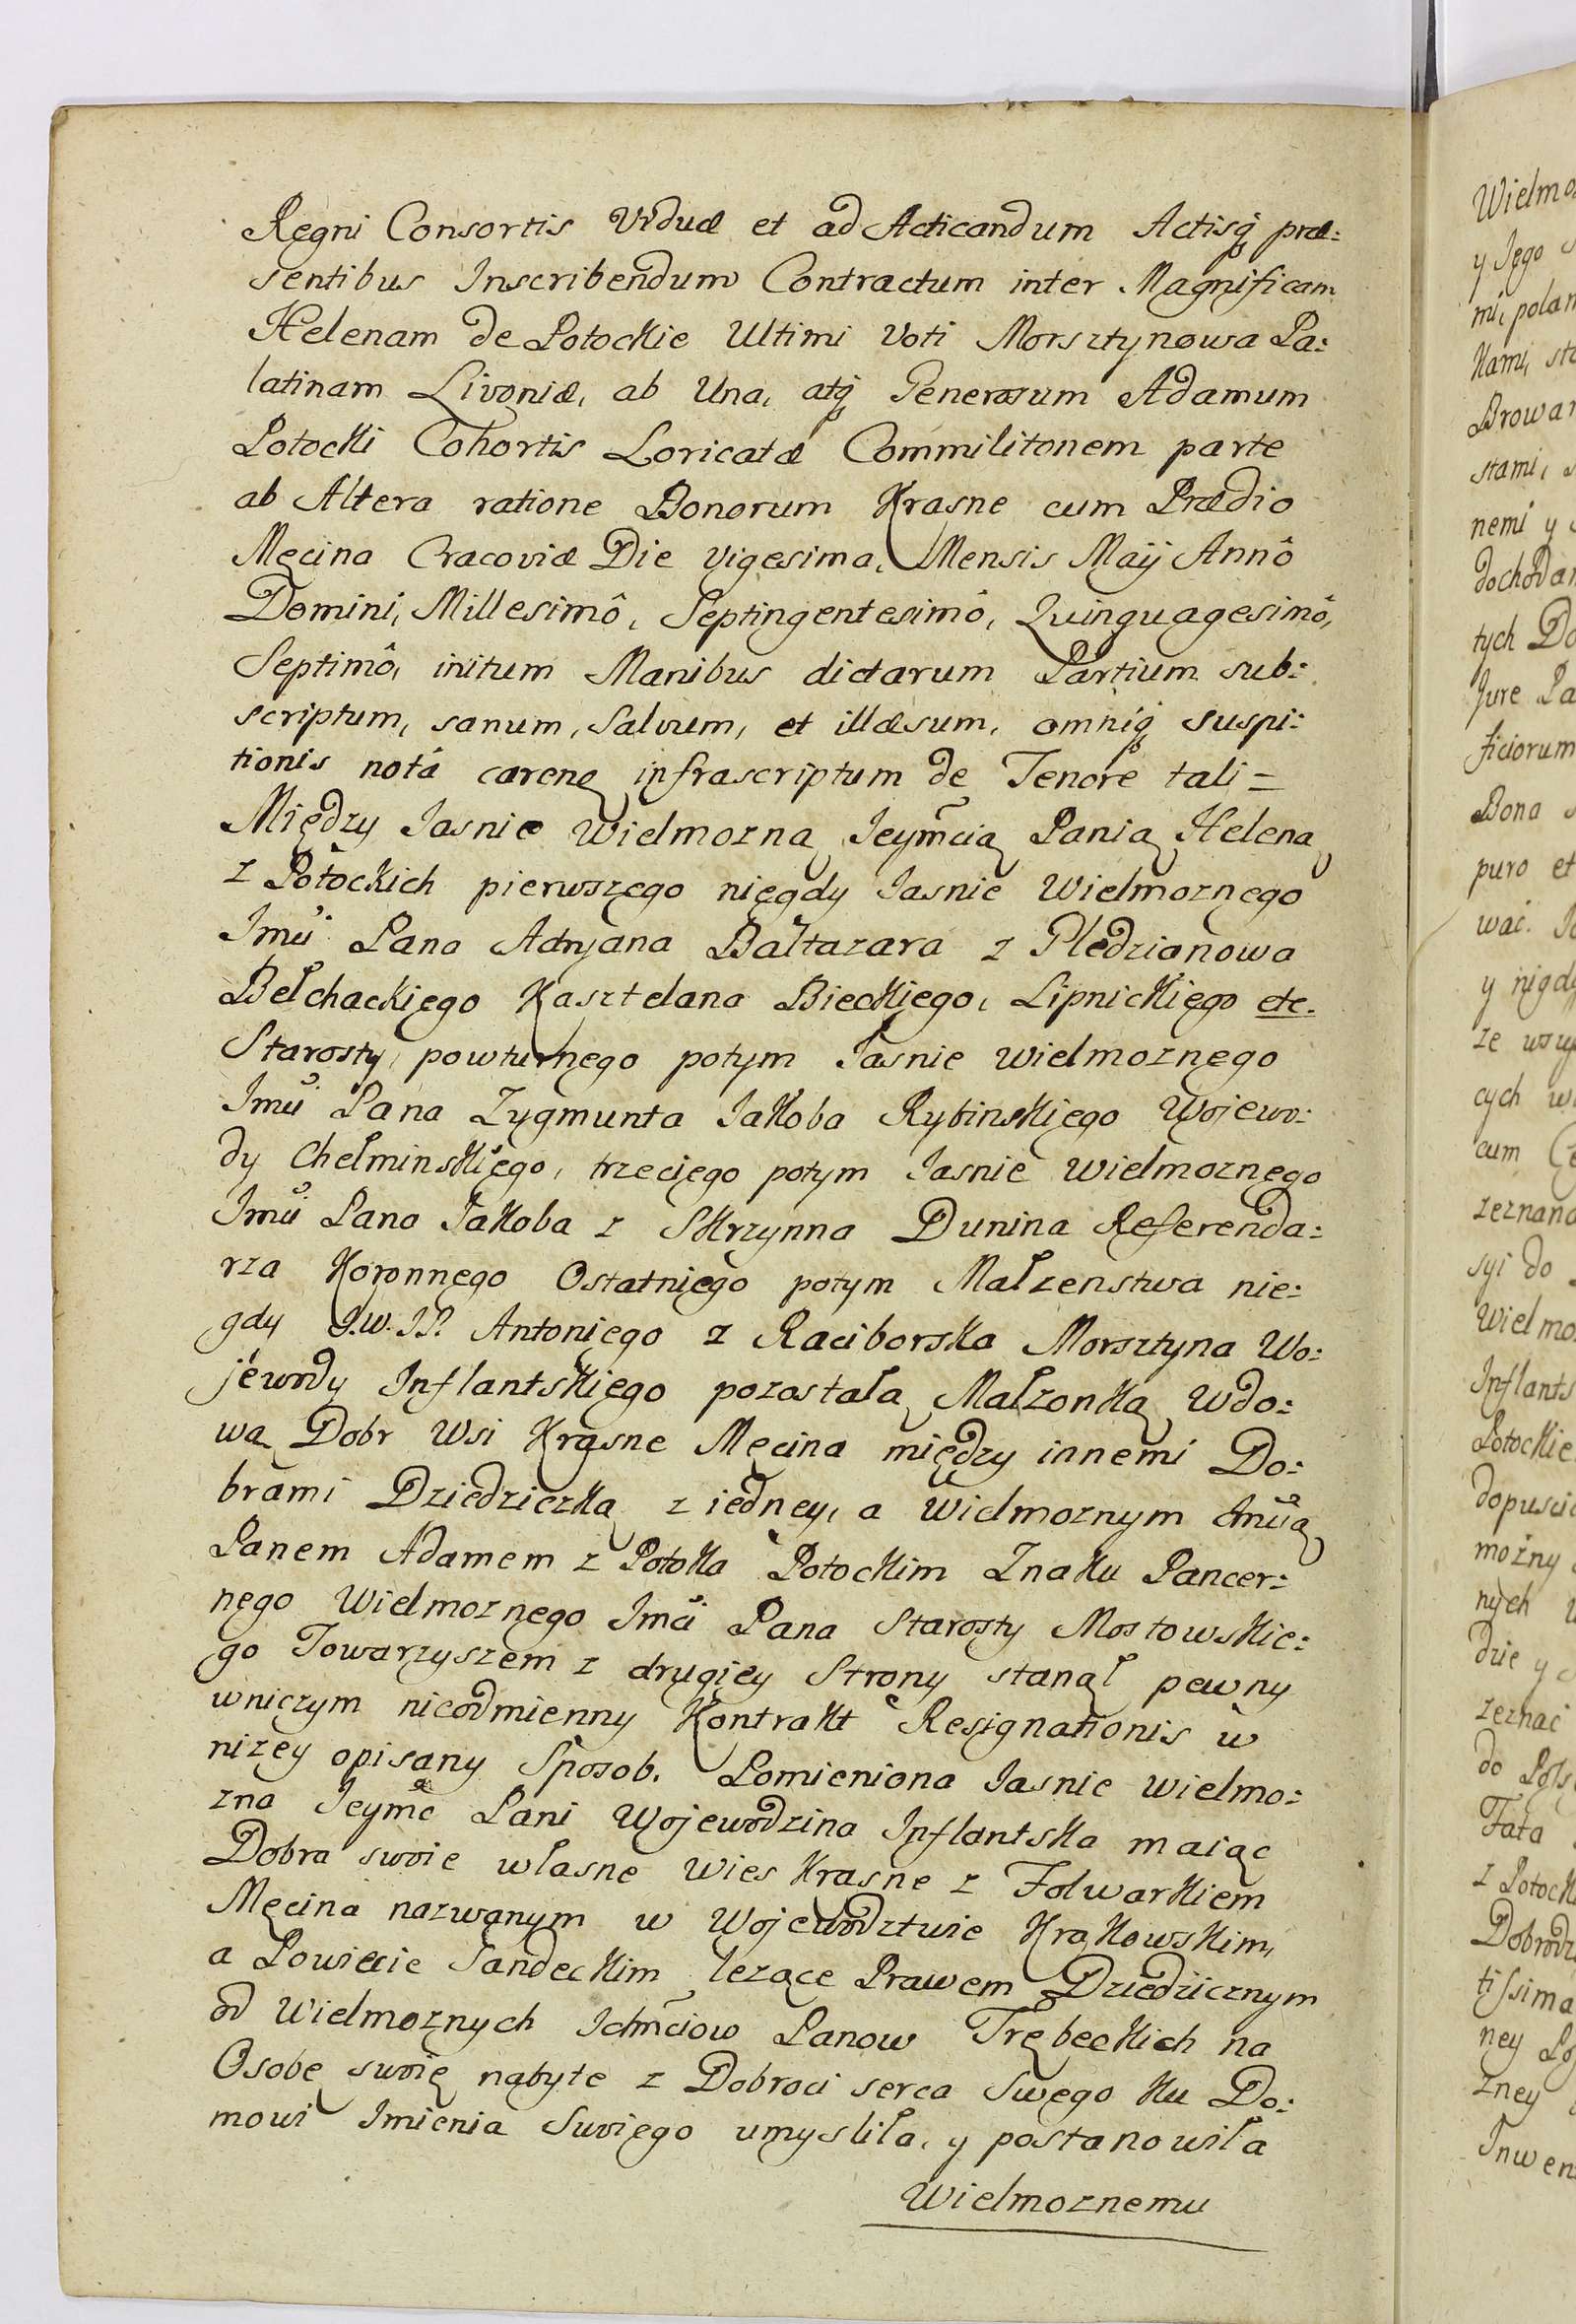 Regni Consortis Viduæ et ad Acticandum Actisq præ:
sentibus Inscribendum Contractum inter Magnificam
Helenam de Potockie Ultimi Voti Morsztynowa Pa:
latinam Livoniæ, ab Una, atq Generosum Adamum
Potocki Cohortis Loricatæ Commilitonem parte
ab Altera ratione Bonorum Krasne cum Prædio
Męcina Cracoviæ Die vigesima, Mensis Maij Annô
Domini, Millesimô, Septingentesimô, Quinquagesimô,
Septimô, initum Manibus dictarum Partium sub:
scriptum, sanum, Salvum, et illæsum, omniq suspi:
tionis notâ careng infrascriptum de Tenore tali =
Między Jasnie Wielmozną Jeymcią Panią Heleną
z Potockich pierwszego niegdy Jasnie Wielmoznego
Jmci Pana Adryana Baltazara z Pledzianowa
Bełchackiego Kasztelana Bieckiego, Lipnickiego etc.
Starosty, powturnego potym Jasnie wielmoznego
Jmci Pana Zygmunta Jakoba Rybinskiego Wojewo:
dy Chełminskiego, trzeciego potym Jasnie wielmoznego
Jmci Pana Jakoba z Skrzynna Dunina Referenda:
rza Koronnego Ostatniego potym Małzenstwa nie:
gdy J.W.JP. Antoniego z Raciborska Morsztyna Wo:
jewody Inflantskiego pozostałą Małzonką Wdo:
wą Dobr Wsi Krasne Męcina między innemi Do:
brami Dziedziczką z iedney, a Wielmoznym Jmcią
Panem Adamem z Potoka Potockim Znaku Pancer:
nego Wielmoznego Jmci Pana Starosty Mostowskie:
go Towarzyszem z drugiey Strony stanął pewny
wniczym nieodmienny Kontrakt Resignationis w
nizey opisany Sposob. Pomieniona Jasnie Wielmo:
zna Jeymć Pani Wojewodzina Inflantska maiąc
Dobra swoie własne Wies Krasne z Folwarkiem
Męcina nazwanym w Wojewodztwie Krakowskim,
a Powiecie Sandeckim lezące Prawem Dziedzicznym
od Wielmoznych Ichmciow Panow Trębeckich na
Osobę swoię nabyte z Dobroci serca Swego ku Do:
mowi Imienia Swoiego umysliła, y postanowiła
Wielmoznemu